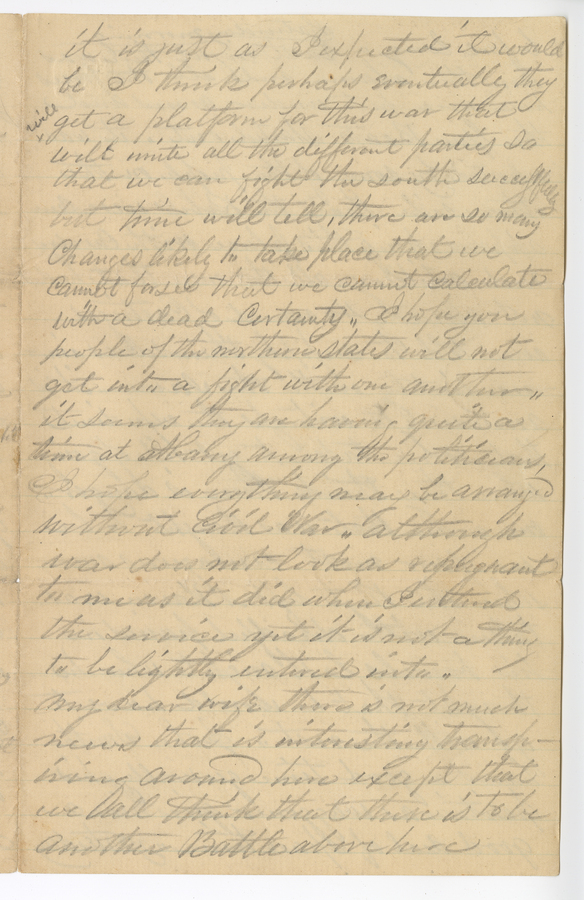 it is just as I expected it would
be I think perhaps eventually they
will
get a platform for this war that
will unite all the different parties so
that we can fight the south successfully
but time will tell, there are so many
Changes likely to take place that we
cannot forsee that we cannot calculate
with a dead Certainty,, I hope you
people of the northern states will not
get into a fight with one another,,
it seems they are having quite a
time at Albany among the politicians,
I hope everything may be arranged
without Civil War,, although
war does not look as repugnant
to me as it did when I entered
the service yet it is not a thing
to be lightly entered into,,
my dear wife there is not much
news that is interesting transp-
iring around here except that
we all think that there is to be
another Battle above here